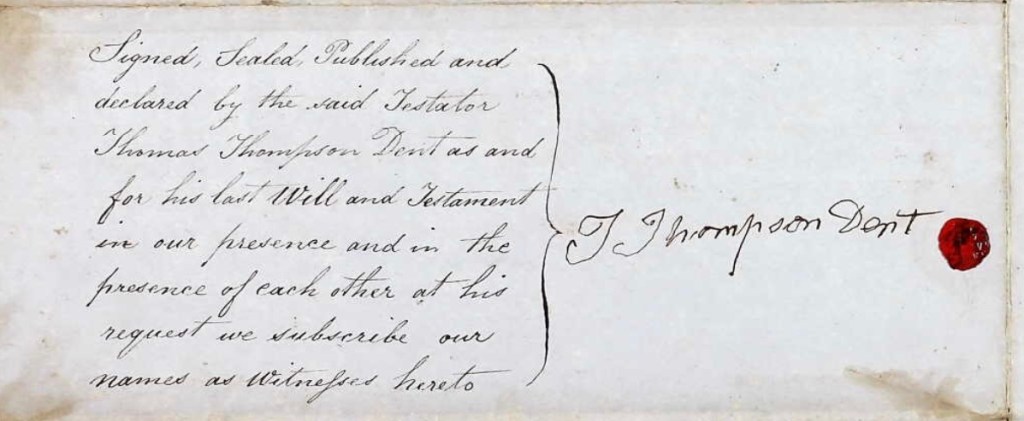 Signed, Sealed, Published and
declared by the said Testator
Thomas Thompson Dent as and
for his last Will and Testament
in our presence and in the
presence of each other at his
request we subscribe our
names as Witneſses hereto
T Thompson Dent